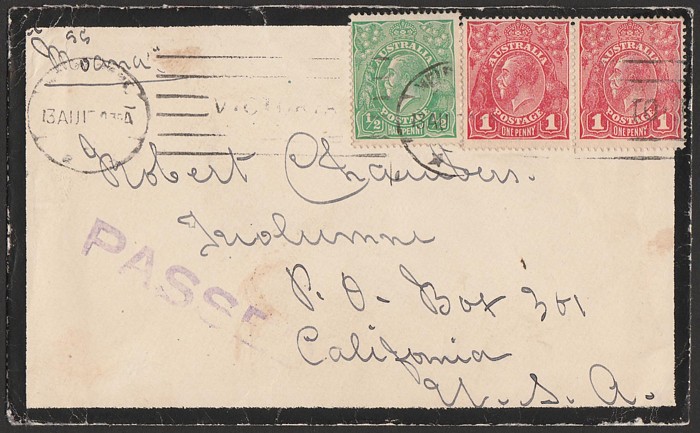 SS
"Moana"
VICTORIA
AUSTRALIA
½
POSTAGE
HALFPENNY
AUSTRALIA
1
POSTAGE
1
ONE PENNY
AUSTRALIA
1
POSTAGE
ONE PENNY
Robert Chambers.
Tuolumne
P.O- Box 301
California
U.S.A.
PASSE